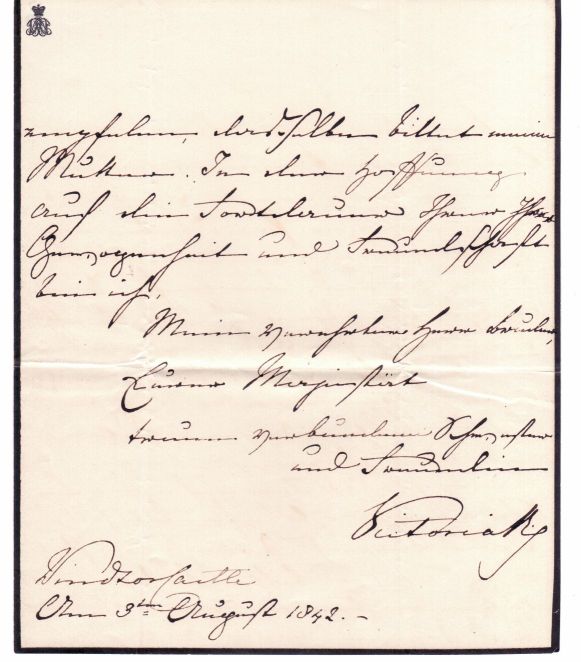 empfehlen, dasselbe bittet meine
Mutter. In der Hoffnung
auf die Fortdauer Ihrer
Gewogenheit und Freundschaft
bin ich,
Mein verehrter Herr Bruder,
Eurer Majestät
treu verbundene Schwester
und Freundin
Victoria R
Windsor Castle
Am 3ten August 1842.-